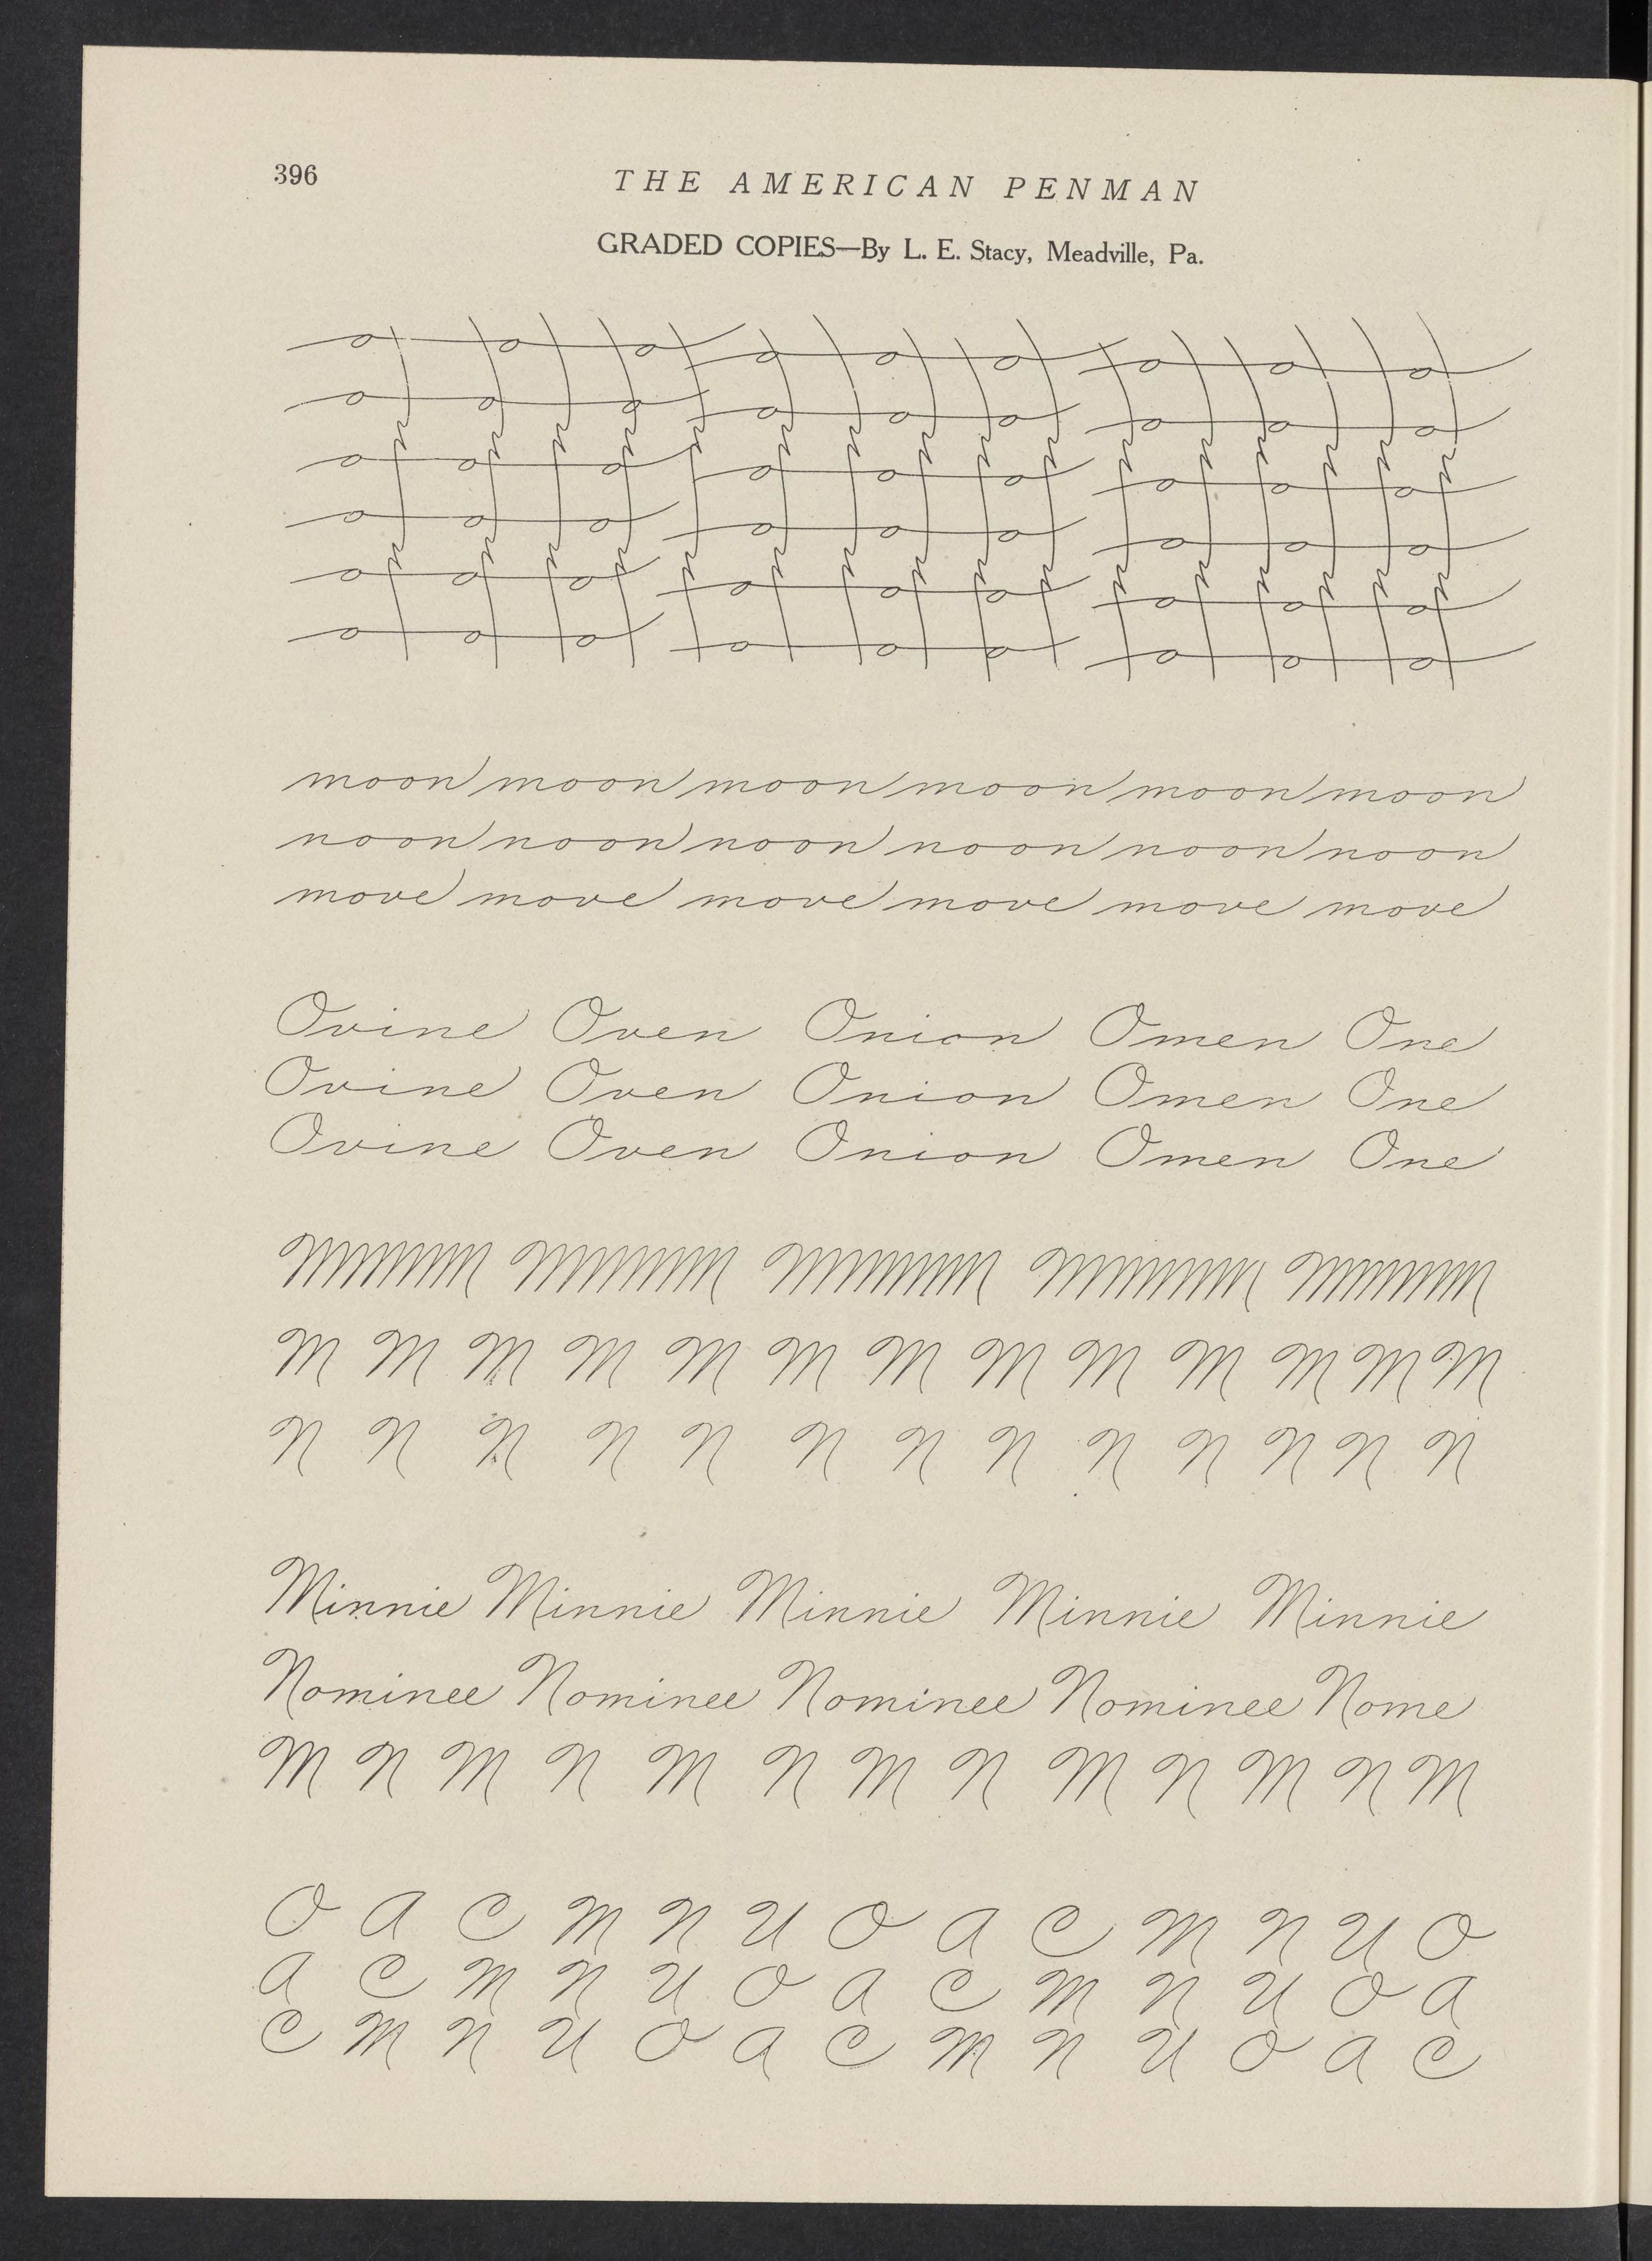 396
THE AMERICAN PENMAN
GRADED COPIES—By L. E. Stacy, Meadville, Pa.
ooo ooo ooo
ooo ooo ooo
ooo ooo ooo
ooo ooo ooo
ooo ooo ooo
ooo ooo ooo
moon moon moon moon moon moon
noon noon noon noon noon noon
move move move move move move
Ovine Oven Onion Omen One
Ovine Oven Onion Omen One
Ovine Oven Onion Omen One
M M M M M M M M M M M M M
N N N N N N N N N N N N N
Minnie Minnie Minnie Minnie Minnie
Nominee Nominee Nominee Nominee Nome
M N M N M N M N M N M N M
O A C M N U O A C M N U O
A C M N U O A C M N U O A
C M N U O A C M N U O A C